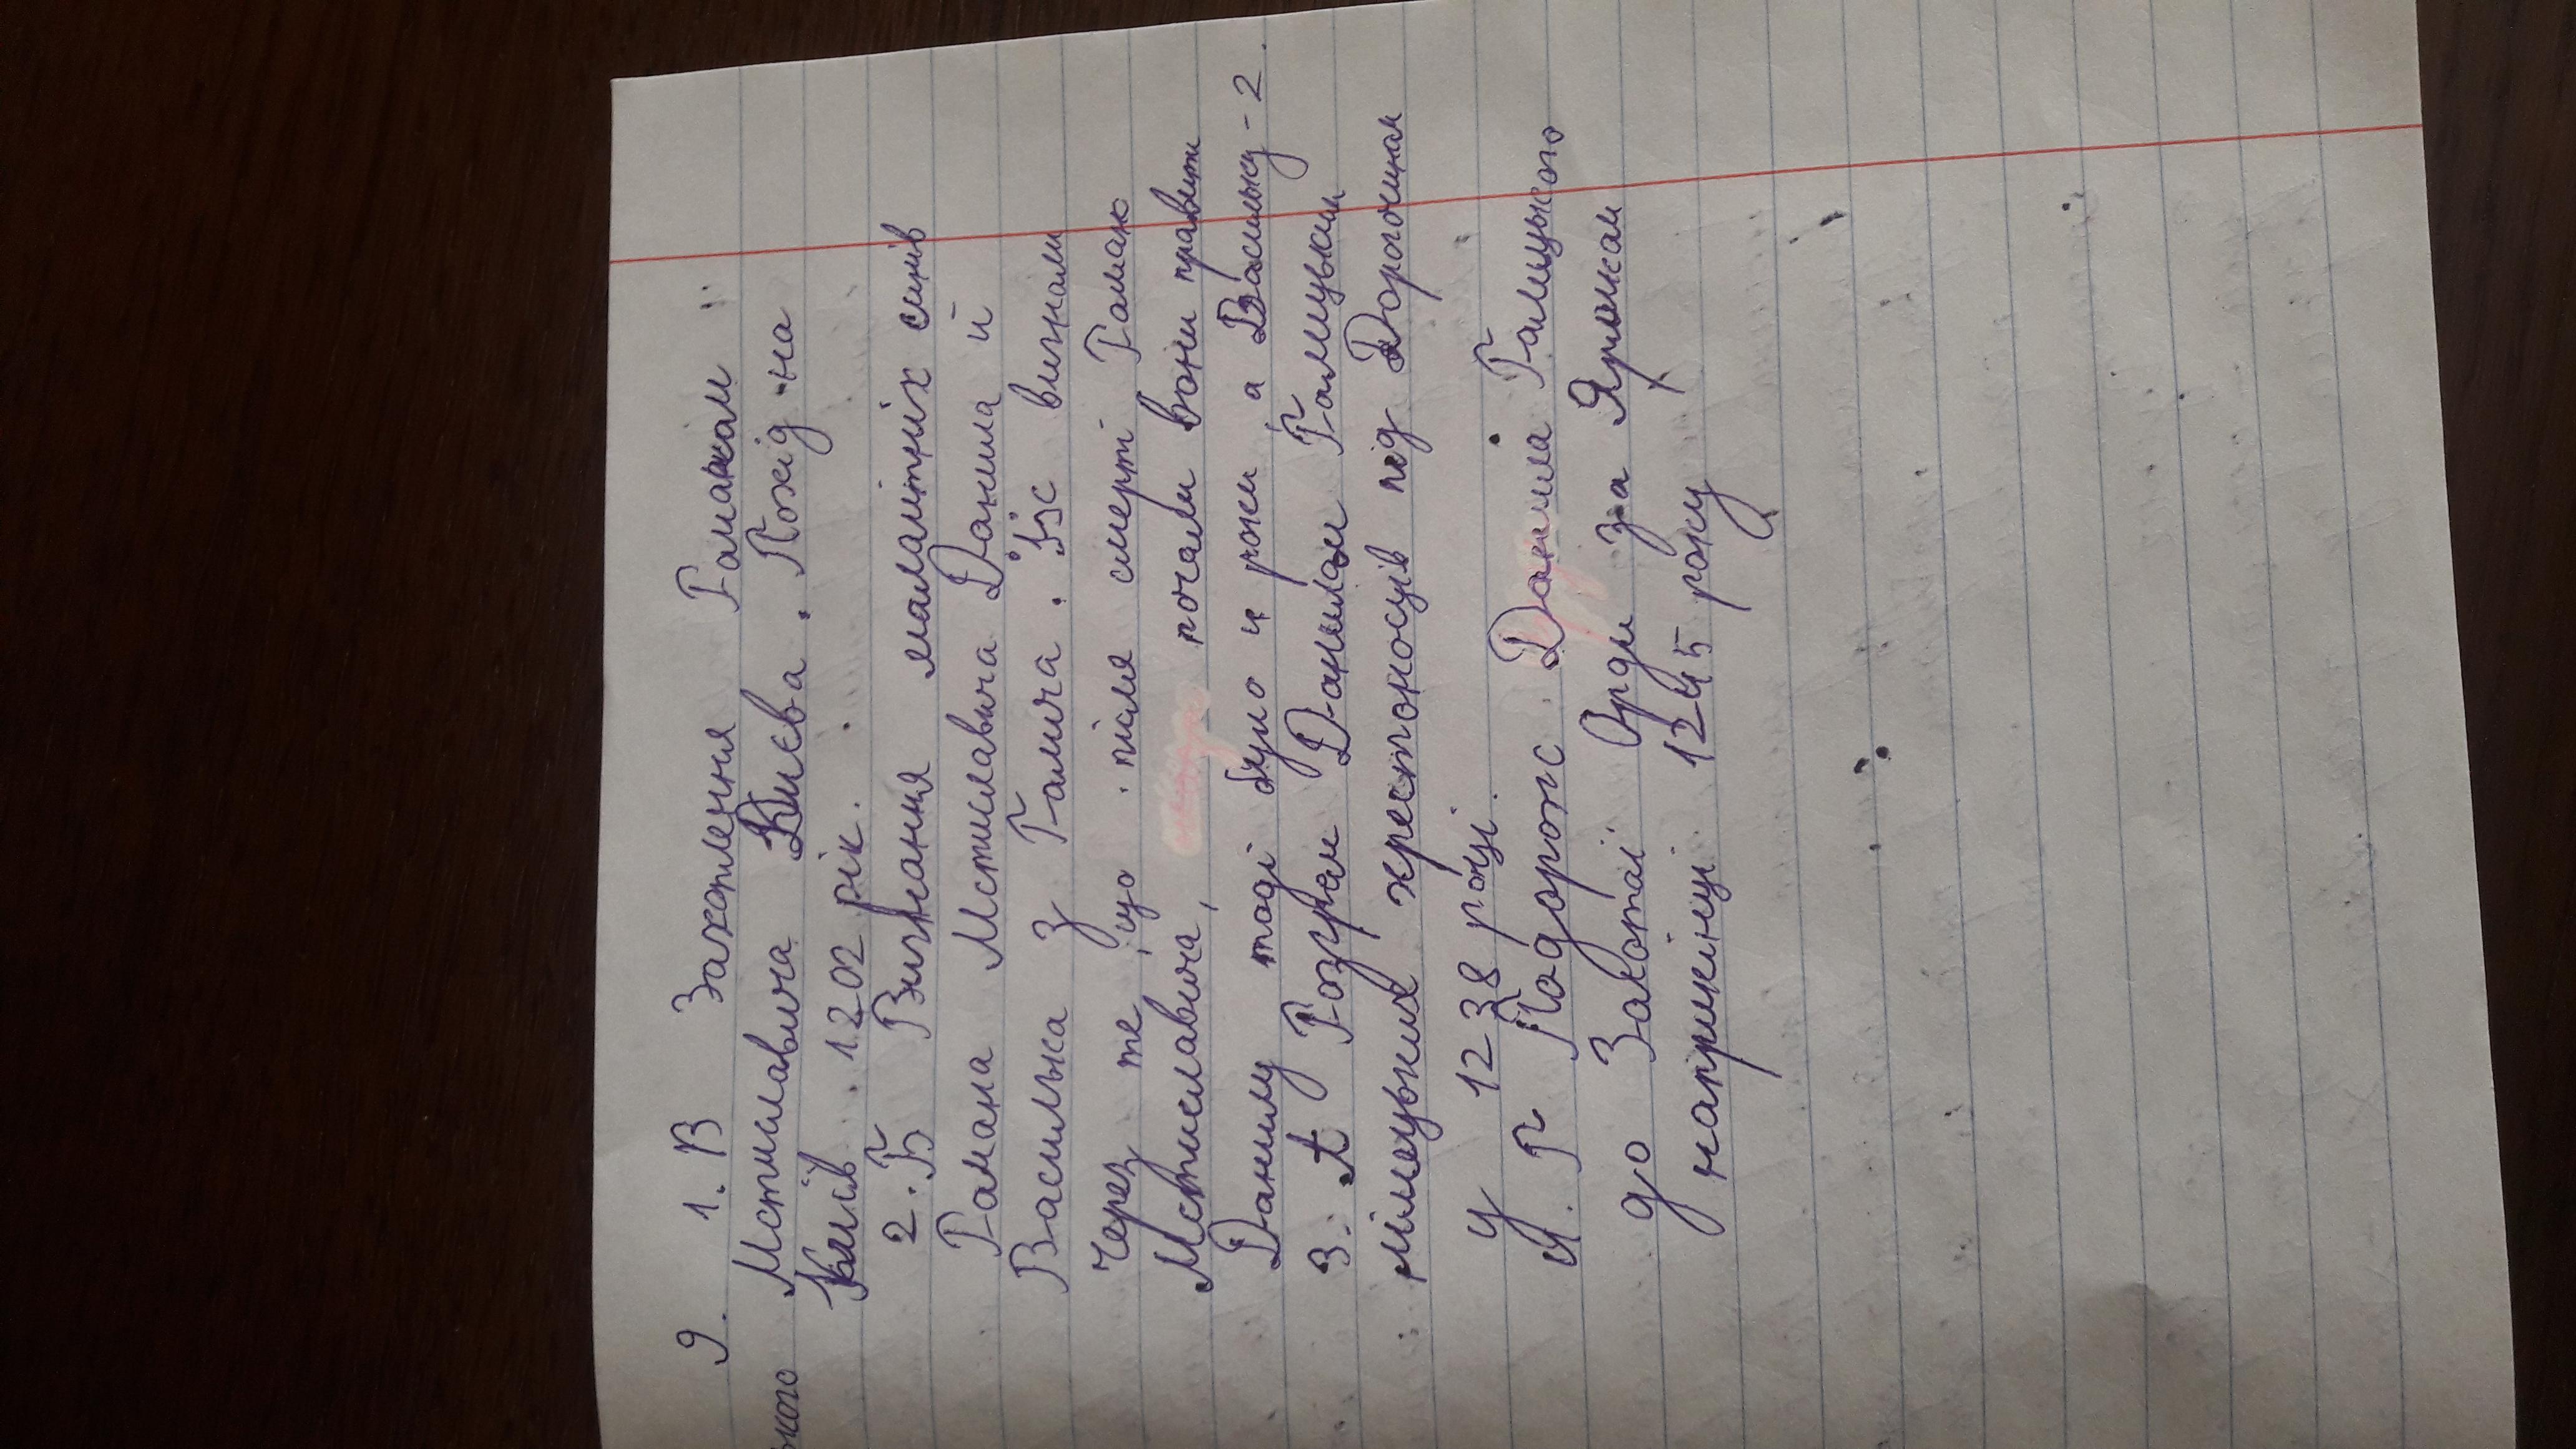 9. 1. В Захоплення Романом
Мстиславича Києва. Похід на
Київ. 1202 рік.
2. Б Вигнання малолітніх синів
Романа Мстиславича Данила й
Василька з Галича. Їх вигнали
через те, що після смерті Романа
Мстиславича, почали вони правити
Данилу тоді було 4 роки а Васильку - 2
3. А Розгром Данилом Галицьким
німецьких хрестоносців під Дорогочином
у 1238 році.
4. Г Подорож Данила Галицького
до Золотої Орди за Ярликом
наприкінці 1245 року
ького